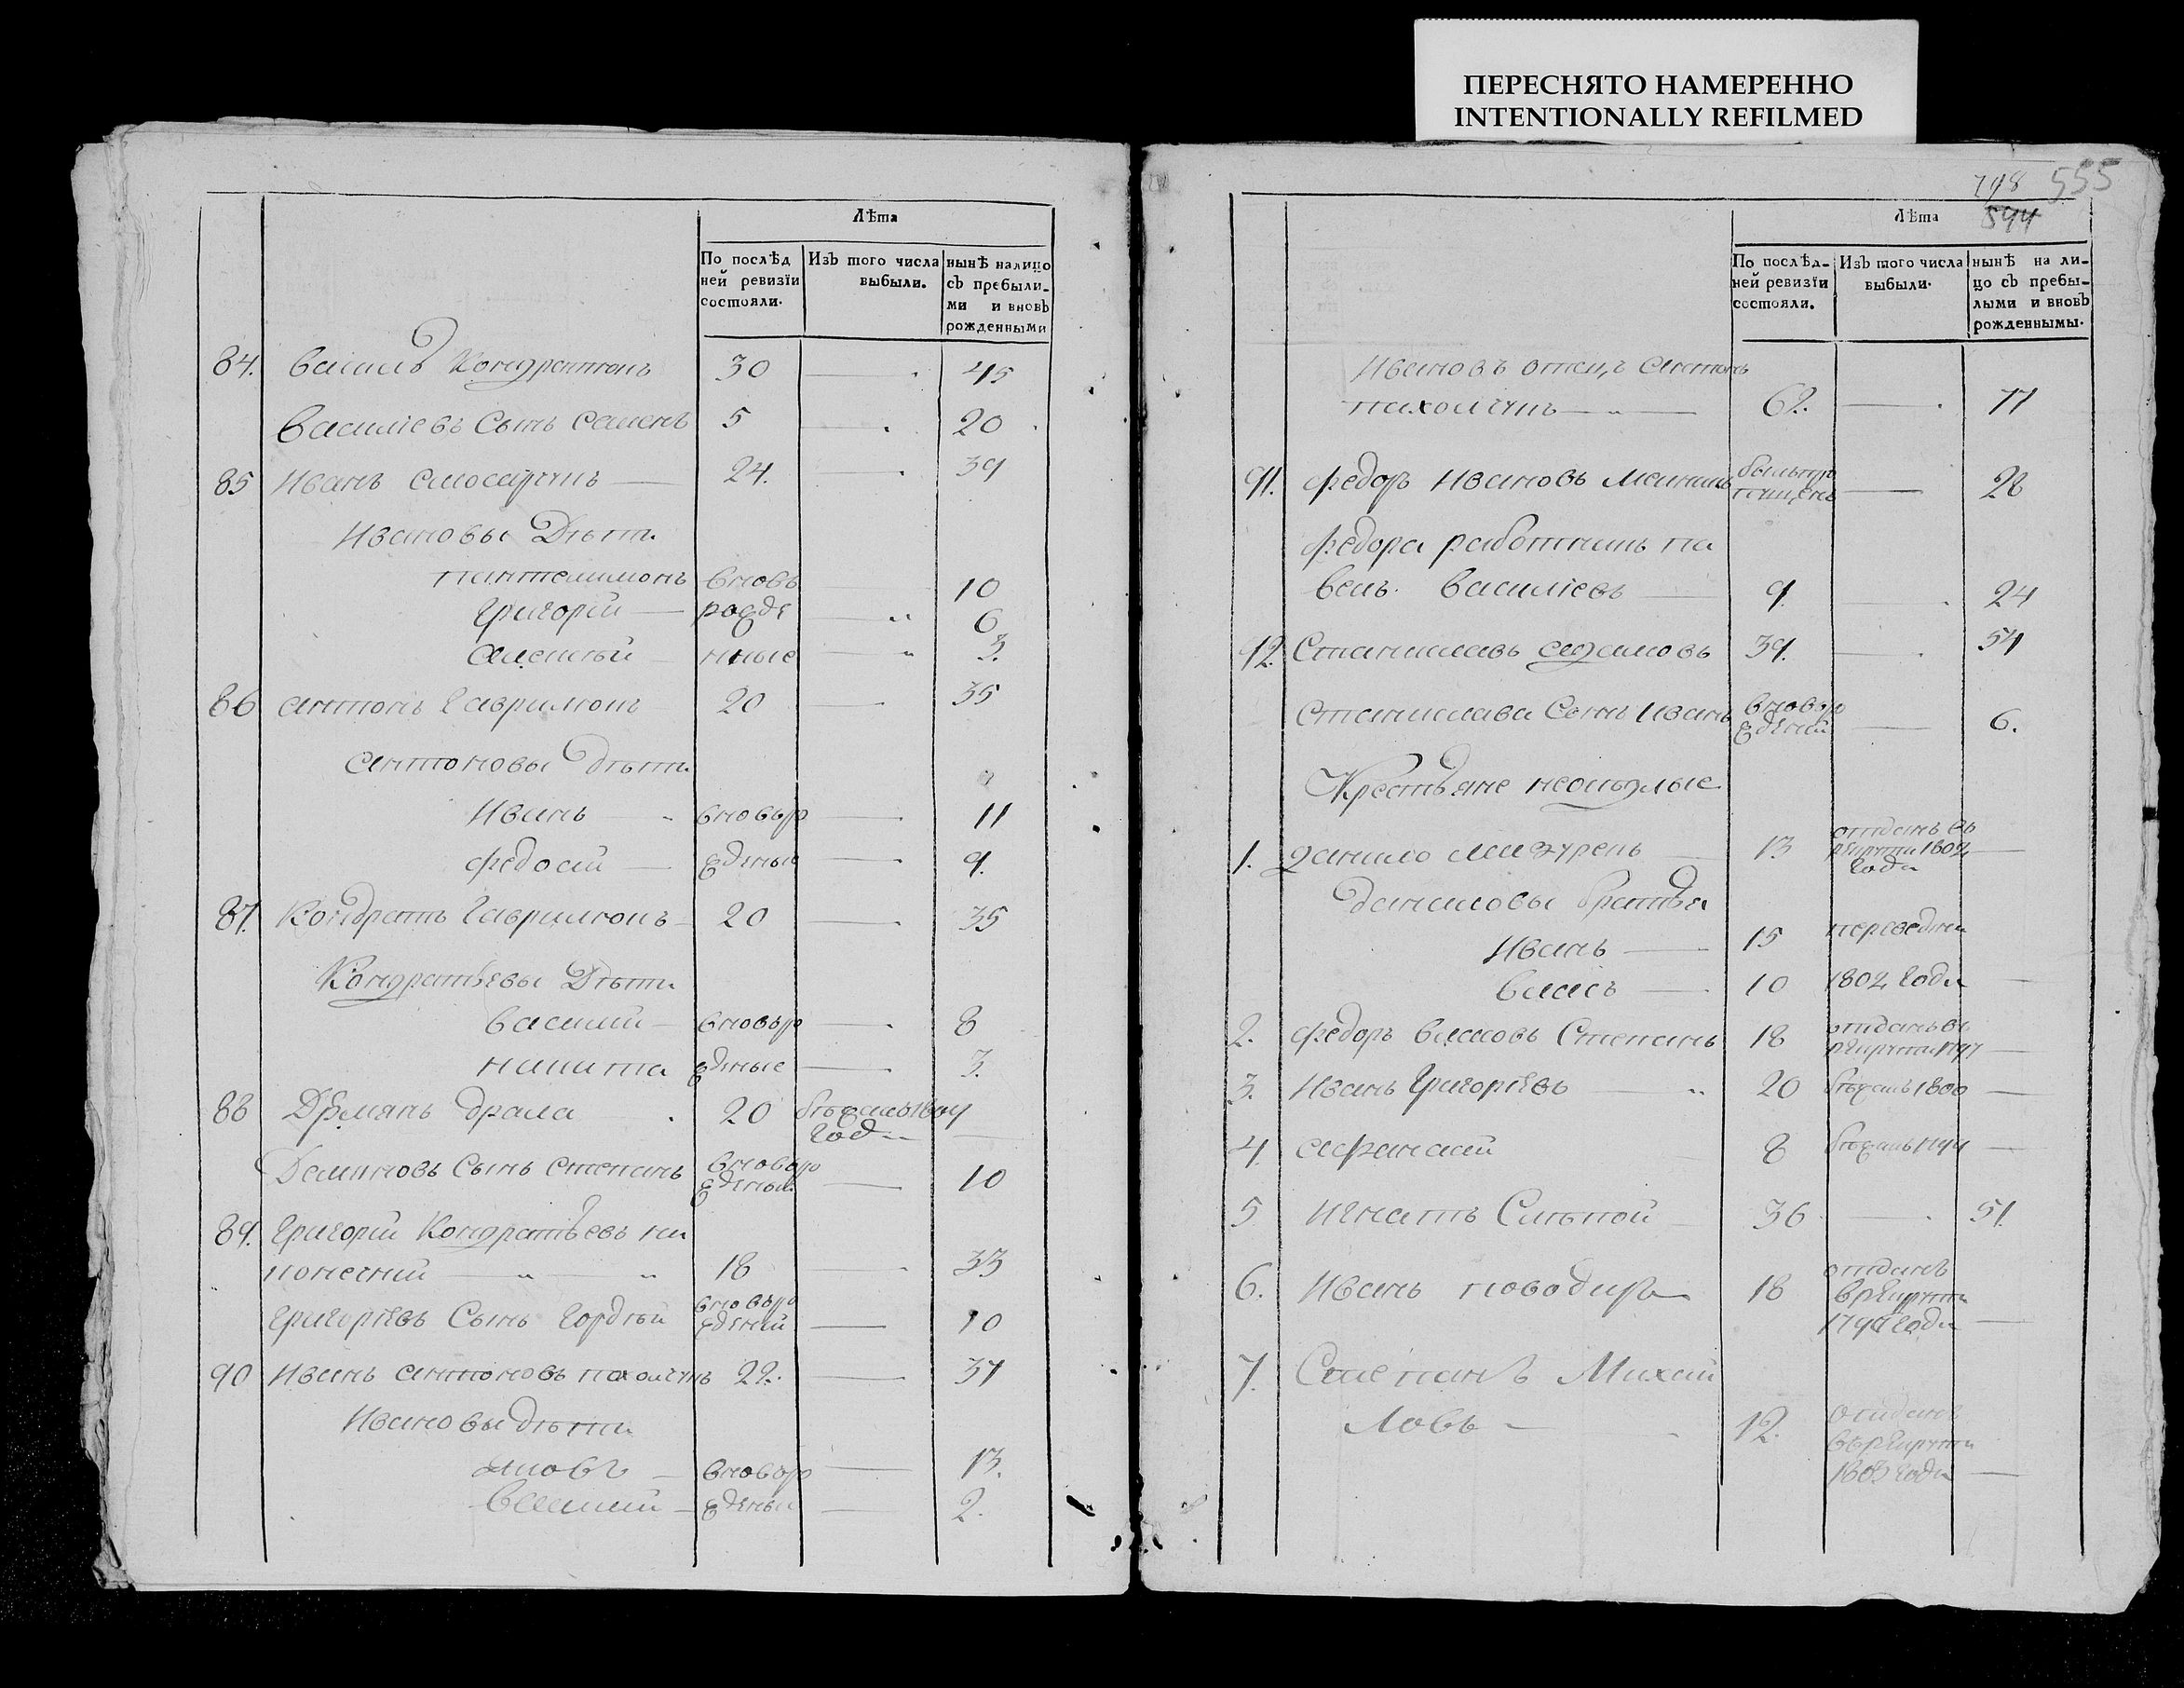 ПЕРЕСНЯТО НАМЕРЕННО
INTENTIONALLY REFILMED
Лѣта
По послѣд
ней ревизїи
состояли.
Изъ того числа
выбыли.
нынѣ налицо
съ пребыли-
ми и вновь
рожденными
84. василь Кондратюкъ 30 45
Василїевъ Сынъ семенъ 5 20
85 Иванъ слюсарчукъ 24. 39
Ивановы Дѣти
пантелимонъ вновь 10
Григорїй рожде 6
Алексѣй нные 3.
86 антонъ гаврилюкъ 20 35
антоновы дѣти
Иванъ вновьр 11
федосїй жденые 9.
87. Кондратъ гаврилюкъ 20 35
Кондратьевы Дѣти
василий вновьр 8
никита жденые 3.
88 Демянъ драла 20 бѣжалъ 1804
года
Демяновъ Сынъ степанъ вновьр
жденый 10
89. Григорїй Кондратьевъ
18 33
Григорїевъ Сынъ Гордѣй вновьро
жденый 10
90 Иванъ антоновъ пахолчукъ 22. 37
Ивановы дѣти
яковъ вновьр 13.
василий жденые 2.
798 555
544
Лѣта
По послѣд-
ней ревизїи
состояли.
Изъ того числа
выбыли.
нынѣ на ли-
цо съ пребы-
лыми и вновь
рожденнымы.
Ивановъ отецъ антонъ
пахолчукъ 62. 77
91. федоръ Ивановъ былъ про
пущенъ 28
федора работникъ па
велъ василїевъ 9. 24
92. Станиславъ адамовъ 39. 54
Станислава Сынъ Иванъ вновьр
жденый 6.
Крестьяне неосѣдлые
1. данило мазурекъ 13 отданъ въ
рекруты 1802
года
даниловы братья
Иванъ 15 переведены
власъ 10 1802 года
2. федоръ власовъ Степанъ 18 отданъ въ
рекруты 1797
3. Иванъ Григорїевъ 20 бѣжалъ 1800
4. афанасий 8 бѣжалъ 1799
5 Игнатъ Слѣпой 36 51.
6. Иванъ поводыръ 18 отданъ
в рекруты
года
7. Степанъ Михай
ловъ 12. отданъ
въ рекруты
1803 года